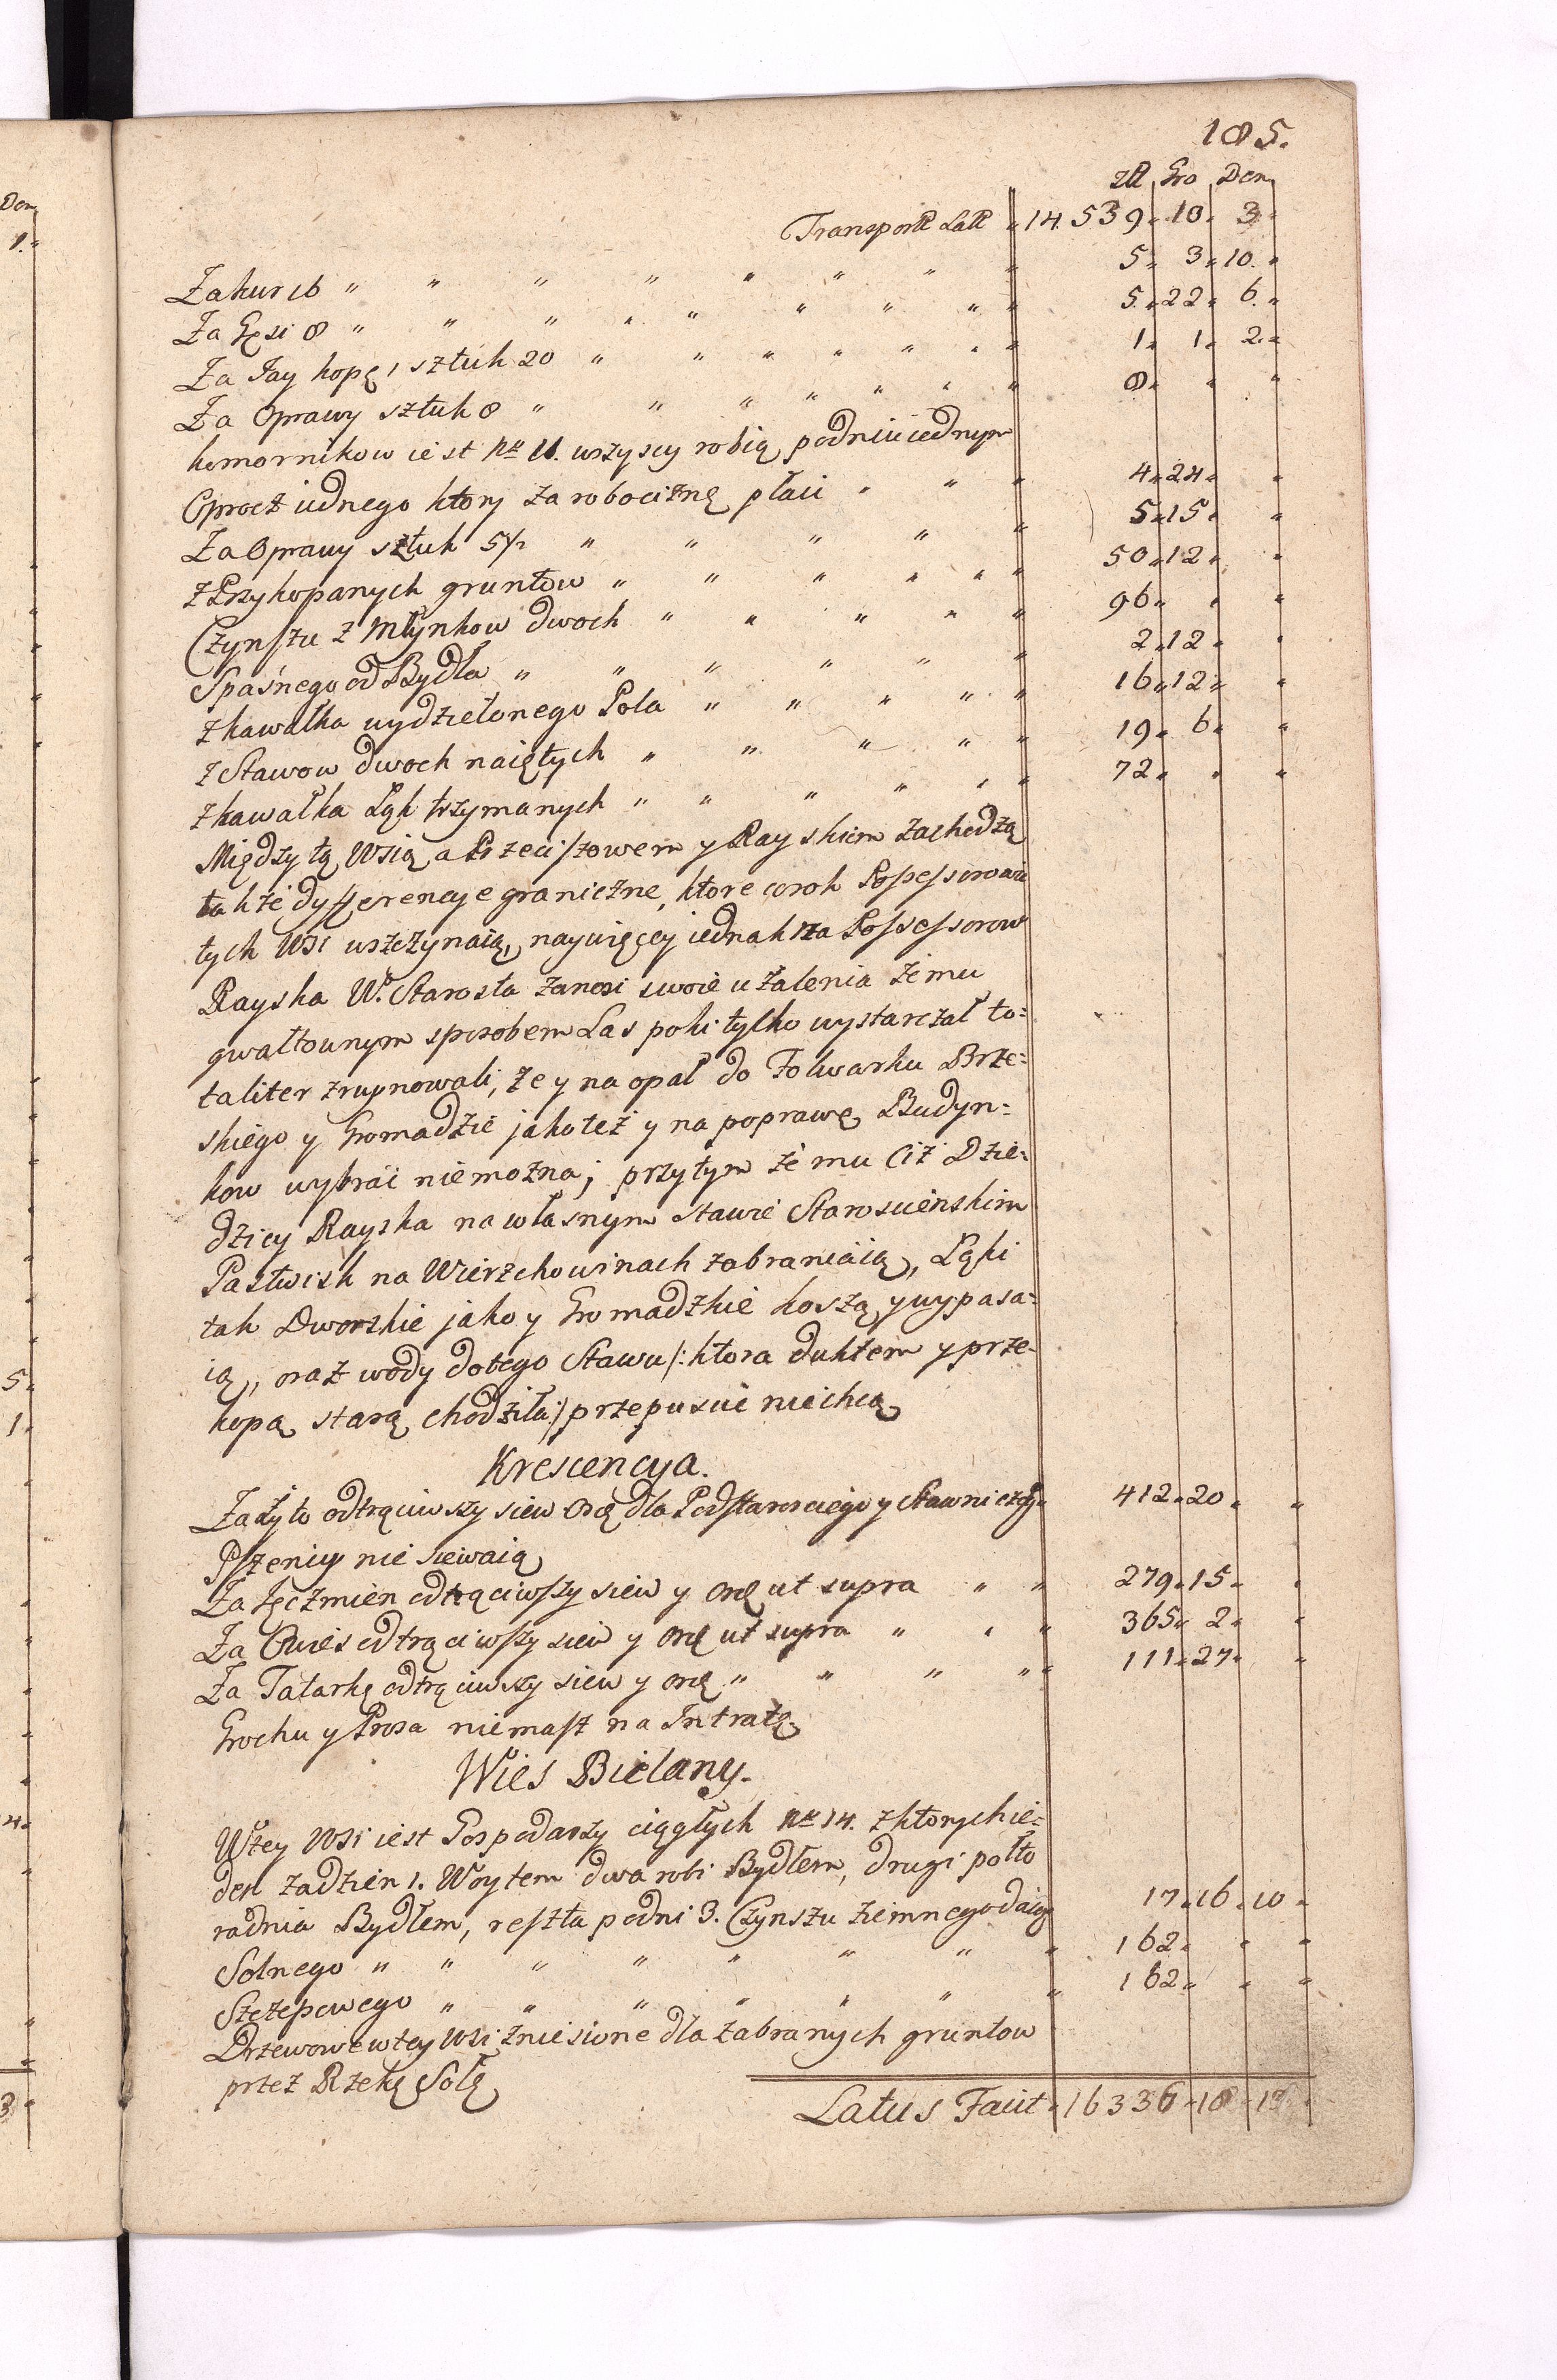 185.
Złł Gro Den
Transportt Latt 14.539 " 10 " 3 "
Za kur 16 " " " " " " " " 5 " 3 " 10. "
Za Gęsi 8 " " " " " " " " " 5. " 22 " 6. "
Za Jay kopę 1 sztuk 20 " " " " " " " 1 " 1 " 2. "
Za Oprawy sztuk 8 " " " " " " " 8 " " "
komornikow iest Nro 11. wszyscy robią podniu iednym
Oprocz iednego ktory za robociznę płaci " " " 4 " 24 " "
Za Oprawy sztuk 5½ " " " " " 5 " 15 " "
z Przykopanych gruntow " " " " " " 50 " 12 " "
Czynszu z Młynkow dwoch " " " " " 96 " " "
Spaśnego od Bydła " " " " " " 2 " 12 " "
z kawałka wydzielonego Pola " " " " " 16 " 12 " "
z Stawow dwoch naiętych " " " " " 19 " 6 " "
z kawałka Łąk trzymanych " " " " " " 72 " " "
Między tą Wsią a Przeciszowem y Rayskiem zachodzą
także dyfferencye graniczne, ktore corok Possessorowie
tych Wsi wszczynaią, naywięcey iednak na Possessorow
Rayska W. Starosta zanosi swoie użalenia że mu
gwałtownym sposobem Las poki tylko wystarczał to=
taliter zruynowali, że y na opał do Folwarku Brze=
skiego y Gromadzie jako też y na poprawę Budyn=
kow wybrać nie można; przytym że mu Ciż Dzie=
dzicy Rayska na własnym Stawie Starościenskim
Pastwisk na Wierzchowinach zabraniaią, Łąki
tak Dworskie jako y Gromadzkie koszą y wypasa=
ią, oraz wody do tego Stawu /: ktora duktem y prze-
kopą starą chodziła :/ przepuścić nie chcą
Krescencya.
Za żyto odtrąciwszy siew Orę dla Podstarosciego y Stawniczego 412 " 20 " "
Pszenicy nie siewaią
Za Jęczmien odtrąciwszy siew y orę ut supra " " 279 " 15 " "
Za Owies odtrąciwszy siew y orę ut supra " " " 365 " 2 " "
Za Tatarkę odtrąciwszy siew y orę " " " " " 111 " 27 " "
Grochu y Prosa nie masz na Intratę.
Wies Bielany.
W tey Wsi iest Gospodarzy ciągłych Nro 14. z ktorych ie=
den za dzien 1. Woytem dwa robi Bydłem, drugi połto
radnia Bydłem, reszta podni 3. Czynszu ziemnego daią 17 " 16 " 10 "
Solnego " " " " " " " " 162 " " "
Szczepowego " " " " " " " 162 " " "
Drzewowe w tey Wsi zniesione dla zabranych gruntow
przez Rzekę Sołę
Latus Facit " 16336 " 18 " 13 "
Den
1. "
5 "
1 "
4 "
3 "